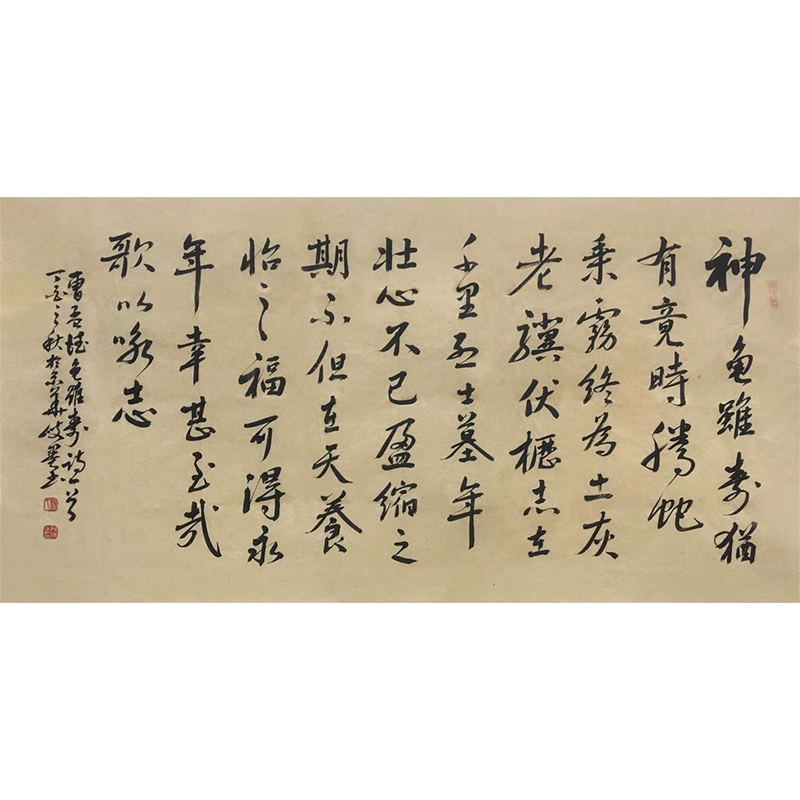 神龜雖壽猶
有竟時騰蛇
乘霧終為土灰
老驥伏櫪志在
千里烈士墓年
壯心不已盈縮之
期不但在天養
怡之福可得永
年幸甚至哉
歌以咏志
曹孟德龜雖壽詩一首
丁亥之秋於京華